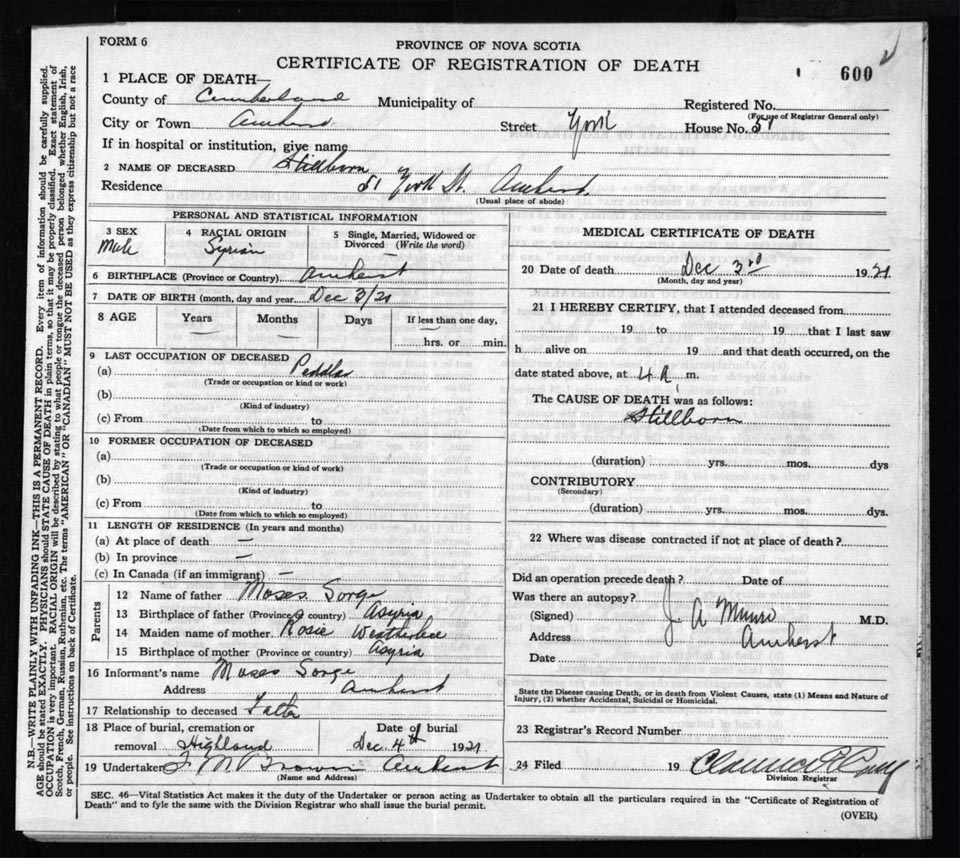 FORM 6
PROVINCE OF NOVA SCOTIA
CERTIFICATE OF REGISTRATION OF DEATH
600
1 PLACE OF DEATH—
County of Cumberland Municipality of Registered No.
(For use of Registrar General only)
City or Town Amherst Street York House No. 51
If in hospital or institution, give name
2 NAME OF DECEASED Stillborn
Residence 51 York St. Amherst.
(Usual place of abode)
PERSONAL AND STATISTICAL INFORMATION
3 SEX 4 RACIAL ORIGIN 5 Single, Married, Widowed or Divorced (Write the word)
Male Syrian
6 BIRTHPLACE (Province or Country) Amherst
7 DATE OF BIRTH (month, day and year) Dec 3/21
8 AGE Years Months Days If less than one day,
— — — hrs. or min.
9 LAST OCCUPATION OF DECEASED
(a) Peddler
(Trade or occupation or kind or work)
(b)
(Kind of industry)
(c) From to
(Date from which to which so employed)
10 FORMER OCCUPATION OF DECEASED
(a)
(Trade or occupation or kind of work)
(b)
(Kind of industry)
(c) From to
(Date from which to which so employed)
11 LENGTH OF RESIDENCE (In years and months)
(a) At place of death —
(b) In province —
(c) In Canada (if an immigrant) —
Parents
12 Name of father Moses Sorge
13 Birthplace of father (Province or country) Asyria
14 Maiden name of mother Rosie Weatherbee
15 Birthplace of mother (Province or country) Asyria
16 Informant's name Moses Sorge
Address Amherst
17 Relationship to deceased Father
18 Place of burial, cremation or removal Highland
Date of burial Dec. 4th 1921
19 Undertaker F M Brown Amherst
(Name and Address)
MEDICAL CERTIFICATE OF DEATH
20 Date of death Dec 3rd 1921
(Month, day and year)
21 I HEREBY CERTIFY, that I attended deceased from
19 to 19 that I last saw
h alive on 19 and that death occurred, on the
date stated above, at 4 A. m.
The CAUSE OF DEATH was as follows:
Stillborn
(duration) yrs. mos. dys
CONTRIBUTORY
(Secondary)
(duration) yrs. mos. dys.
22 Where was disease contracted if not at place of death?
Did an operation precede death? Date of
Was there an autopsy?
(Signed) J A Munro M.D.
Address Amherst
Date
State the Disease causing Death, or in death from Violent Causes, state (1) Means and Nature of
Injury, (2) whether Accidental, Suicidal or Homicidal.
23 Registrar's Record Number
24 Filed 19 Clarence
Division Registrar
SEC. 46—Vital Statistics Act makes it the duty of the Undertaker or person acting as Undertaker to obtain all the particulars required in the "Certificate of Registration of
Death" and to fyle the same with the Division Registrar who shall issue the burial permit.
(OVER)
N.B.—WRITE PLAINLY WITH UNFADING INK—THIS IS A PERMANENT RECORD. Every item of information should be carefully supplied.
AGE should be stated EXACTLY. PHYSICIANS should STATE CAUSE OF DEATH in plain terms, so that it may be properly classified. Exact statement of
OCCUPATION is very important. RACIAL ORIGIN will be described by stating to what people or tongue the deceased person belonged whether English, Irish,
Scotch, French, German, Russian, Ruthenian, etc. The terms "AMERICAN" OR "CANADIAN" MUST NOT BE USED as they express citizenship but not a race
or people. See instructions on back of Certificate.